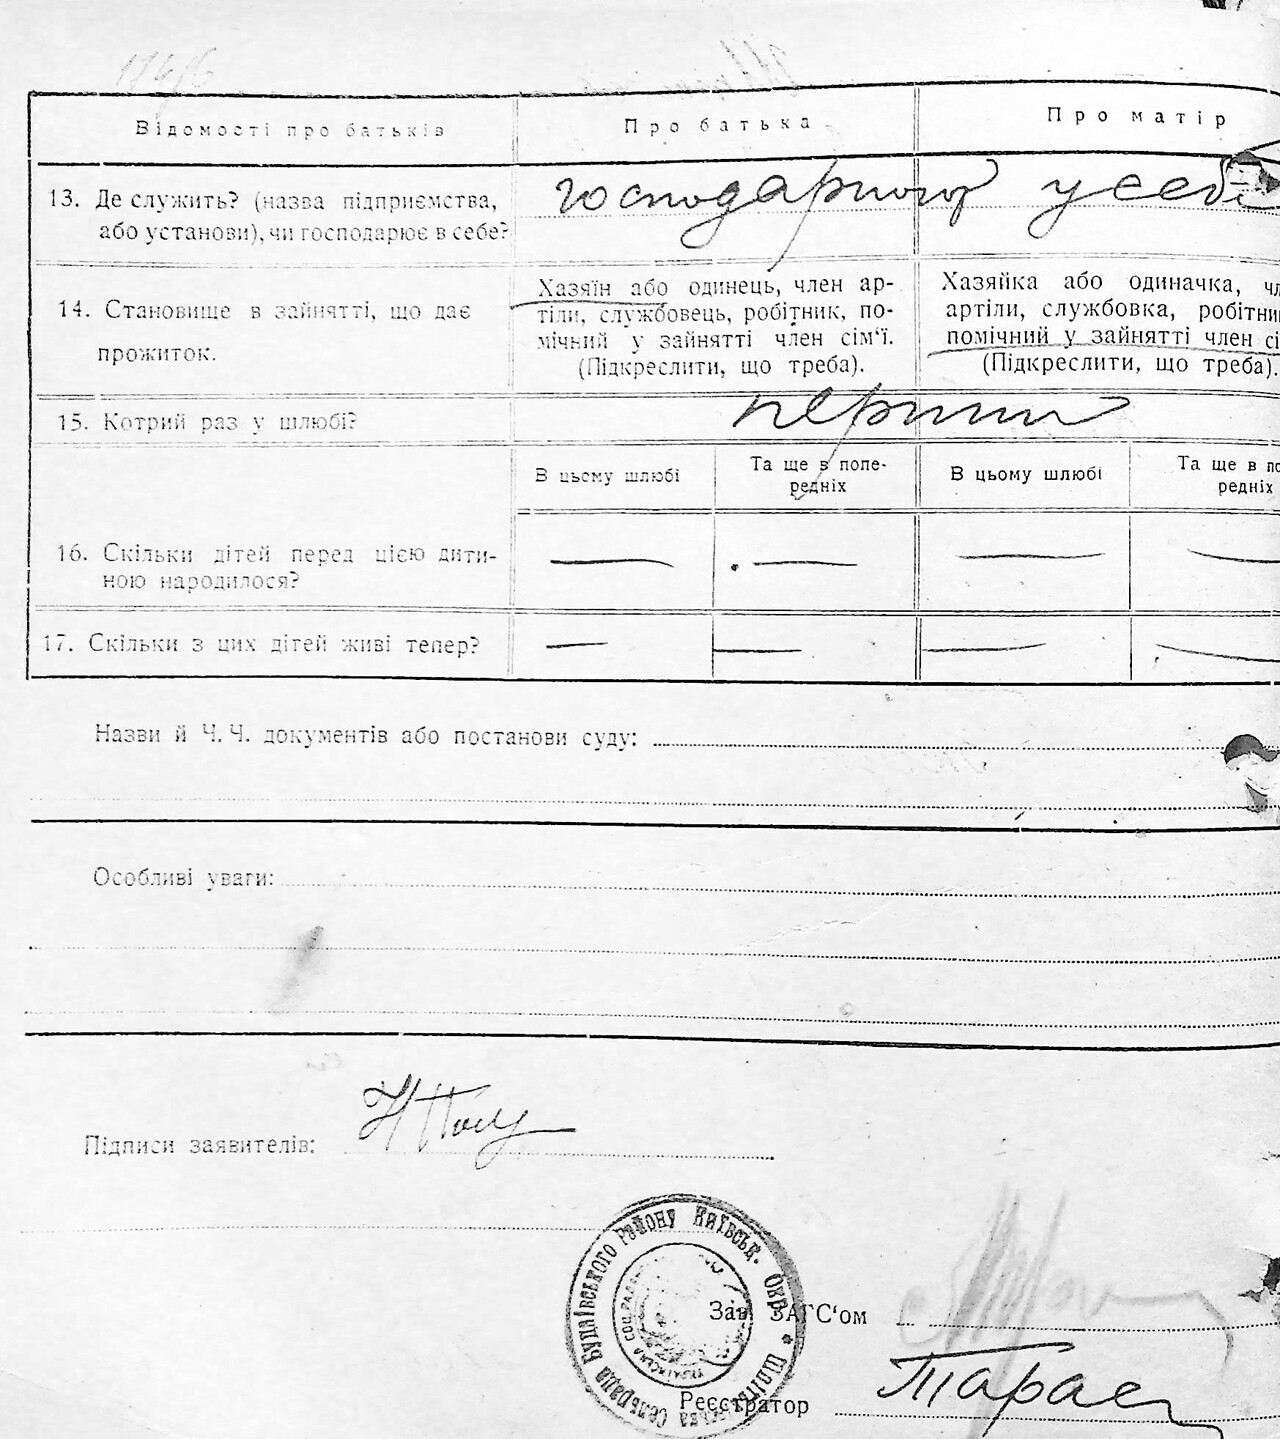 Відомості про батьків
Про батька
Про матір
13. Де служить? (назва підприємства,
або установи), чи господарює в себе?
у себе
14. Становище в зайнятті, що дає
прожиток.
Хазяїн або одинець, член ар-
тіли, службовець, робітник, по-
мічний у зайнятті член сім'ї.
(Підкреслити, що треба).
Хазяйка або одиначка, чл
артіли, службовка, робітни
помічний у зайнятті член сі
(Підкреслити, що треба).
15. Котрий раз у шлюбі?
перший
В цьому шлюбі
Та ще в попе-
редніх
В цьому шлюбі
Та ще в по
редніх
16. Скільки дітей перед цією дити-
ною народилося?
17. Скільки з цих дітей живі тепер?
Назви й Ч. Ч. документів або постанови суду:
Особливі уваги:
Підписи заявителів:
Сельрада Будаївського району Київськ. Окр.
Зав. ЗАГС'ом
Реєстратор
Тарас